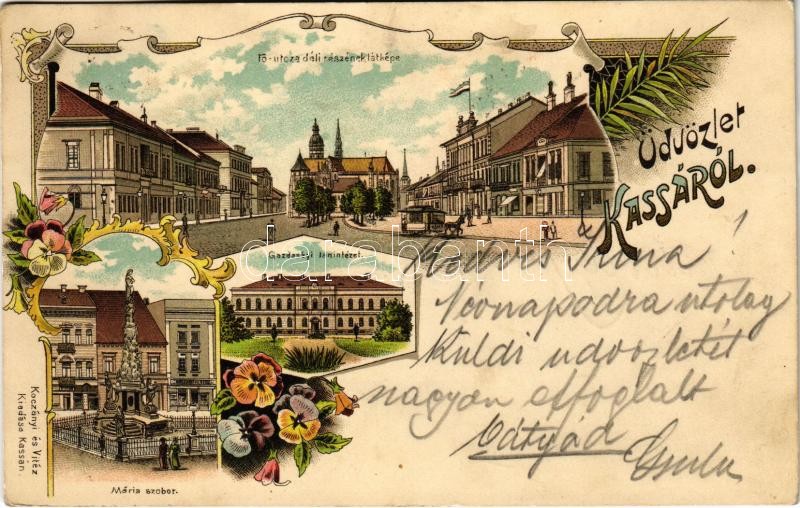 Fő-utcza déli részének látképe
Üdvözlet
KASSÁRÓL.
Gazdasági tanintézet.
Mária szobor.
Koczányi és Vitéz
Kiadása Kassán.
darabanth
Kedves Irma!
utolag
Küldi üdvözletét
nagyon elfoglalt
bátyád
Gyula